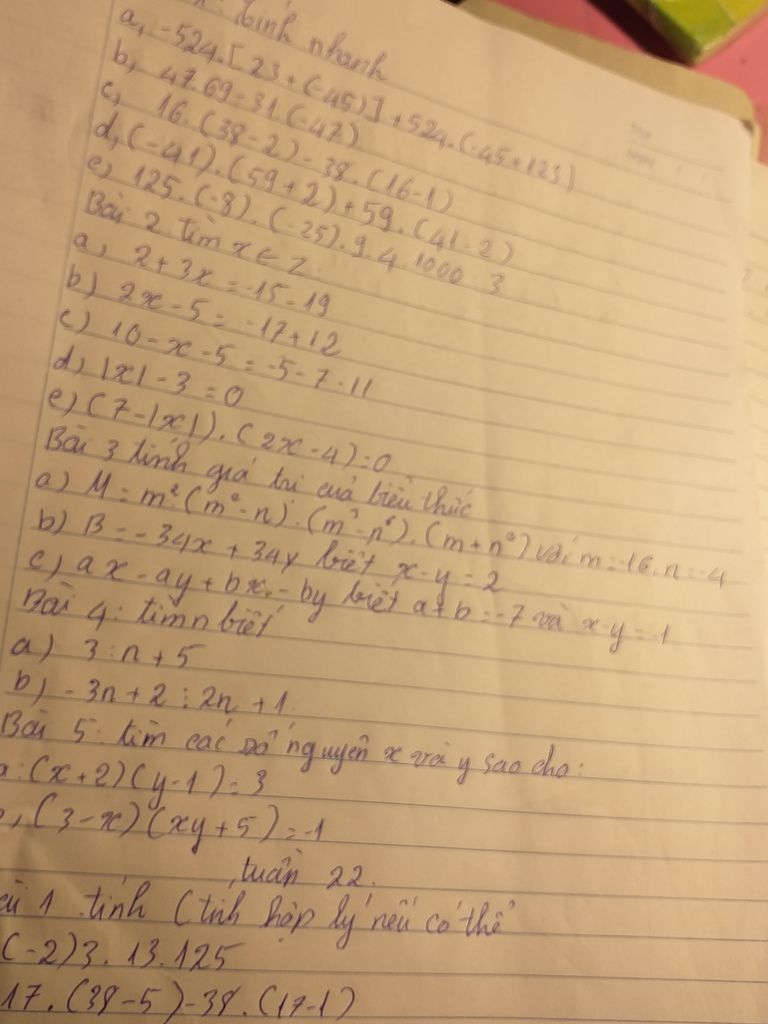 : tính nhanh
a, -524.[23 + (-45)] + 524.(-45+123)
b, 47.69 - 31.(-47)
c, 16.(38-2) - 38.(16-1)
d, (-41).(59+2) + 59.(41-2)
e, 125.(-8).(-25).9.4.1000.3
Bài 2. tìm x ∈ Z.
a, 2 + 3x = -15 - 19
b) 2x - 5 = -17 + 12
c) 10 - x - 5 = -5 - 7 - 11
d, |x| - 3 = 0
e) (7 - |x|).(2x - 4) = 0
Bài 3 tính giá trị của biểu thức
a) M = m².(m² - n).(m³ - n⁶).(m + n²) với m = -16, n = -4
b) B = -34x + 34y biết x-y = 2
c) ax - ay + bx - by biết a + b = -7 và x-y = -1
Bài 4: tìm n biết
a) 3 : n + 5
b) -3n + 2 : 2n + 1.
Bài 5: tìm các số nguyên x và y sao cho:
a: (x+2)(y-1) = 3
, (3-x)(xy+5) = -1
tuần 22.
ài 1 tính (tính hợp lý nếu có thể
(-2)3.13.125
17.(38-5) - 38.(17-1)